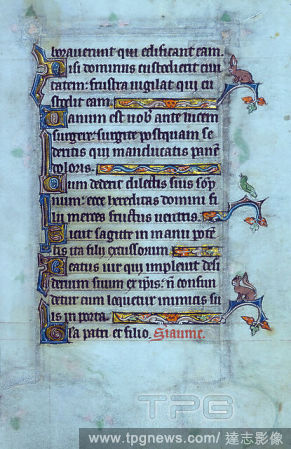 borauerunt qui edificant eam.
Nisi dominus custodierit ciui
tatem: frustra uigilat qui cu
stodit eam.
Uanum est uob' ante lucem
surgere: surgite postquam se
deritis qui manducatis pane
doloris.
Cum dederit dilectis suis sop
num: ecce hereditas domini fi
lii merces fructus uentris.
Sicut sagitte in manu pote
tis ita filii excussorum.
Beatus uir qui impleuit desi
derium suum ex ipsis: n confun
detur cum loquetur inimicis su
is in porta.
Gla patri et filio. Sicut
TPG
www.tpgnews.com/ 達志影像